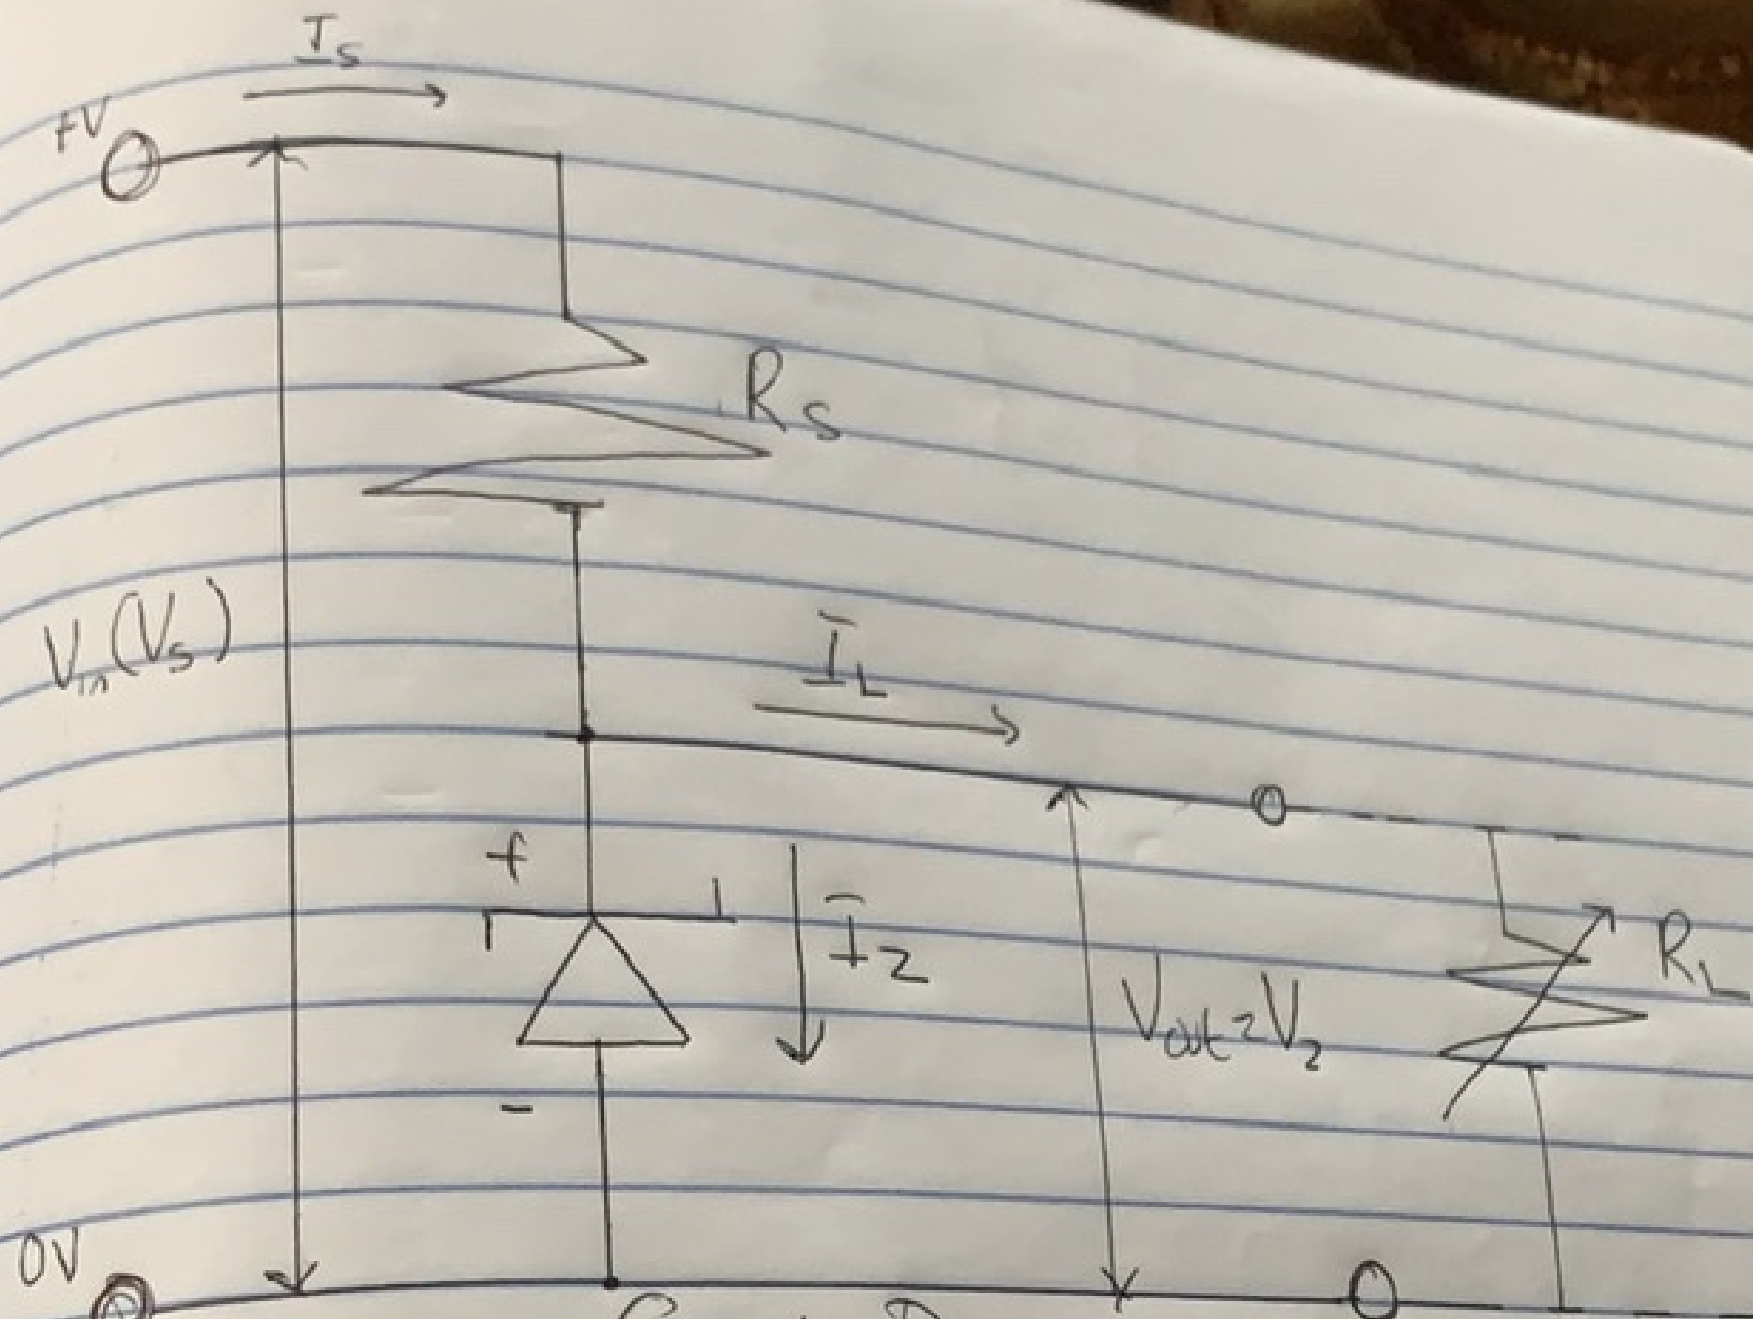 Is
+V
Rs
Vin(Vs)
IL
+
Iz
RL
Vout=Vz
-
0V